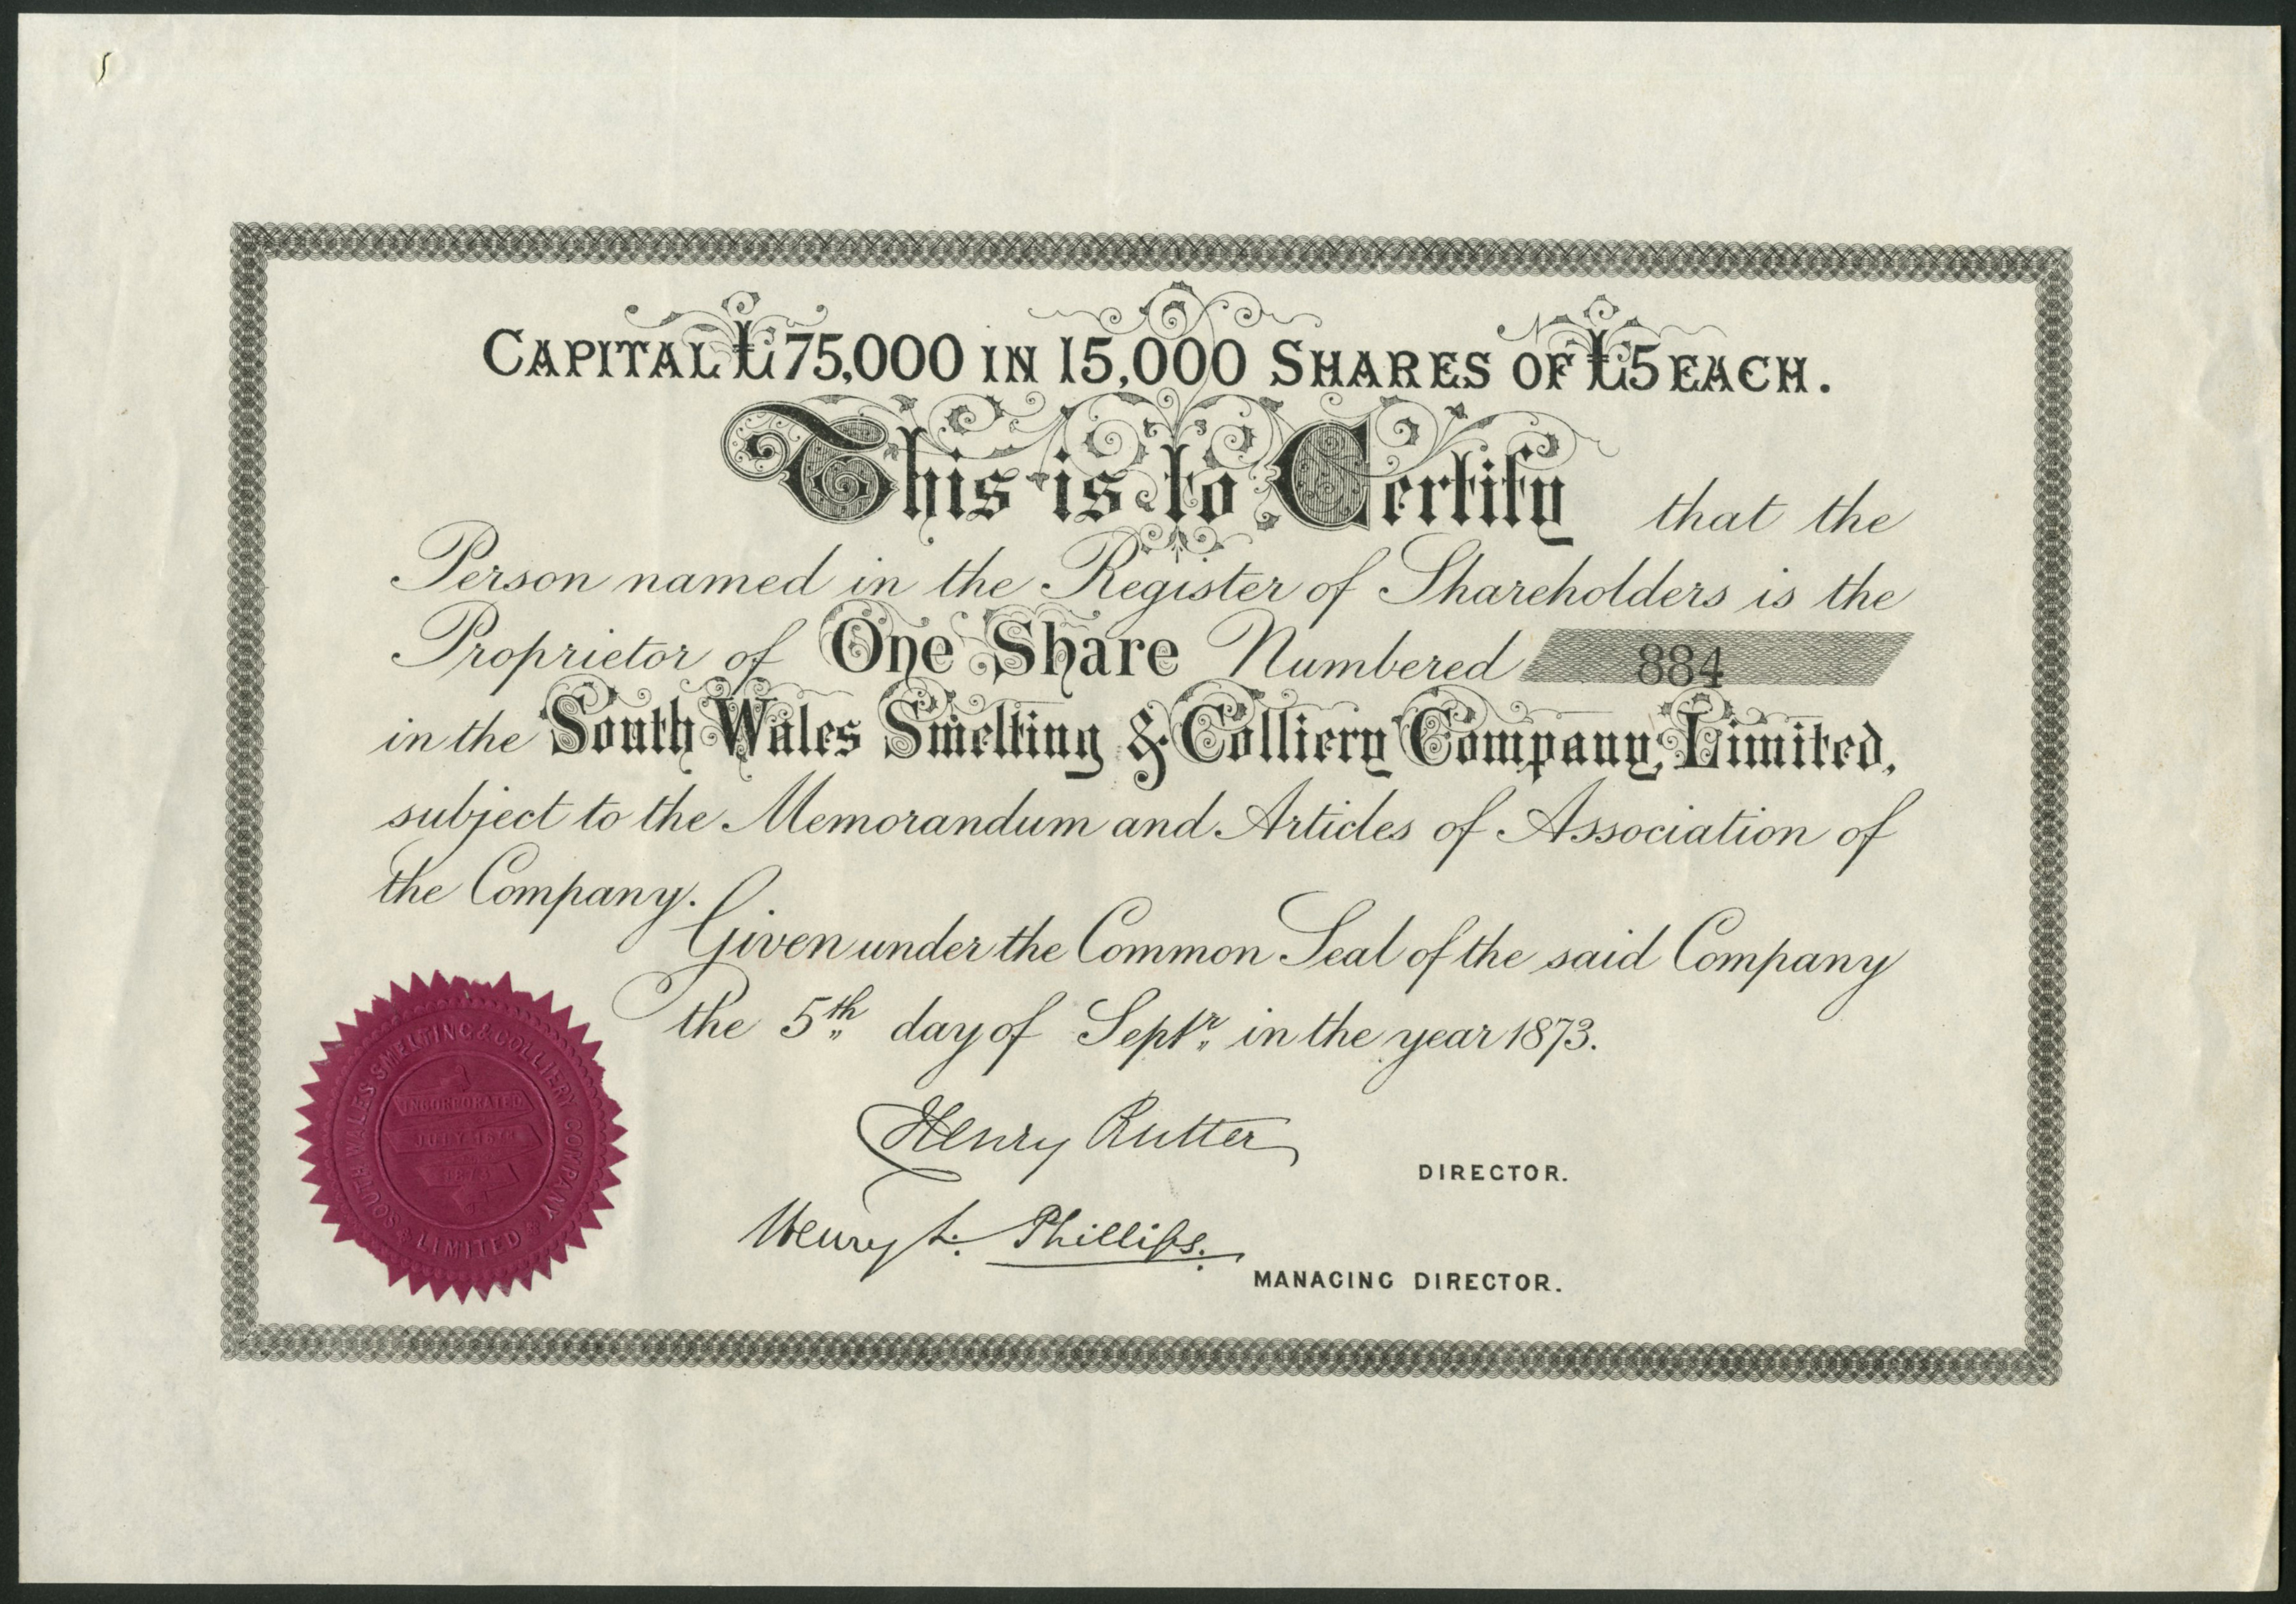 CAPITAL £75,000 IN 15,000 SHARES OF £5 EACH.
This is to Certify that the
Person named in the Register of Shareholders is the
Proprietor of One Share Numbered 884
in the South Wales Smelting & Colliery Company, Limited,
subject to the Memorandum and Articles of Association of
the Company.
Given under the Common Seal of the said Company
the 5th day of Septr in the year 1873.
Henry Rutter
DIRECTOR.
Henry L. Phillips.
MANAGING DIRECTOR.
SOUTH WALES SMELTING & COLLIERY COMPANY
LIMITED
INCORPORATED
JULY 16TH
1873